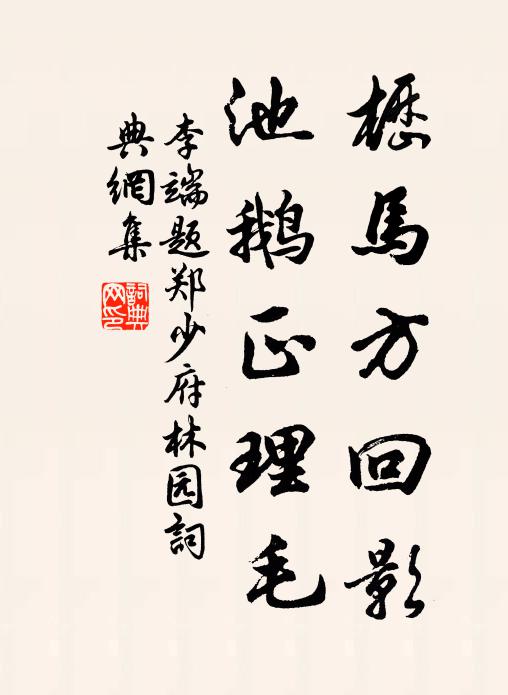 櫪馬方回影
池鵝正理毛
李端題郑少府林园詞
典網集
詞典
网印